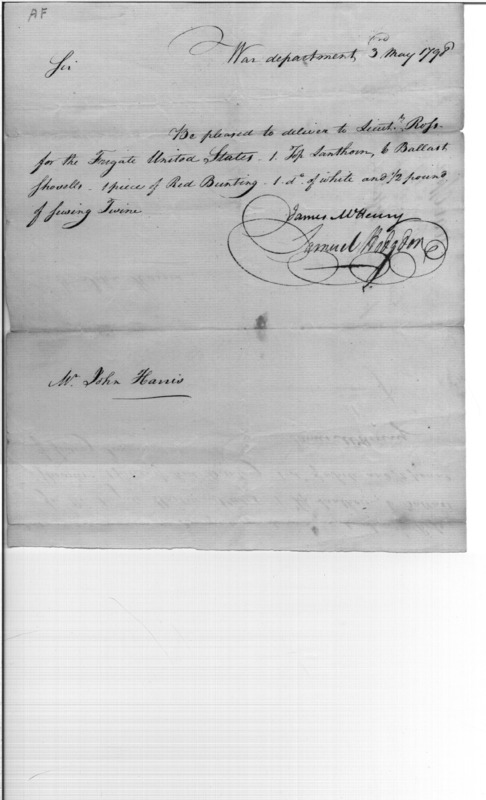 AF
War department, 3rd May 1798
Sir
Be pleased to deliver to Lieut. Ross
for the Frigate United States - 1. Top Lanthorn, 6 Ballast
Shovells - 1 piece of Red Bunting - 1. do. of white and 1/2 pound
of sewing Twine
James McHenry
Samuel Hodgdon
Mr. John Harris